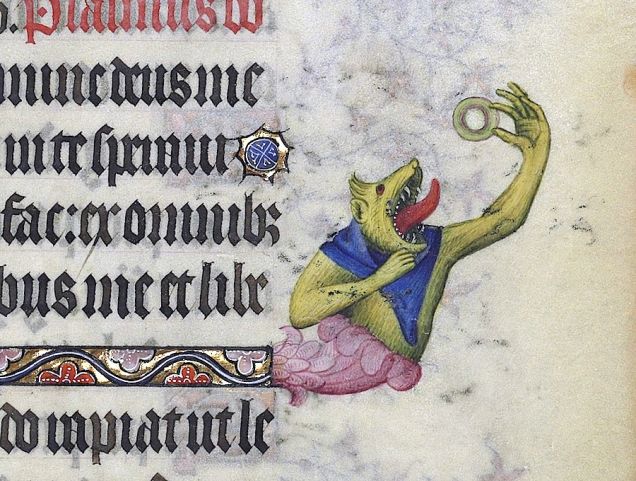 Psalmus
mine deus me
in te speraui
fac: ex omnibꝫ
bus me et libe
do rapiat ut le